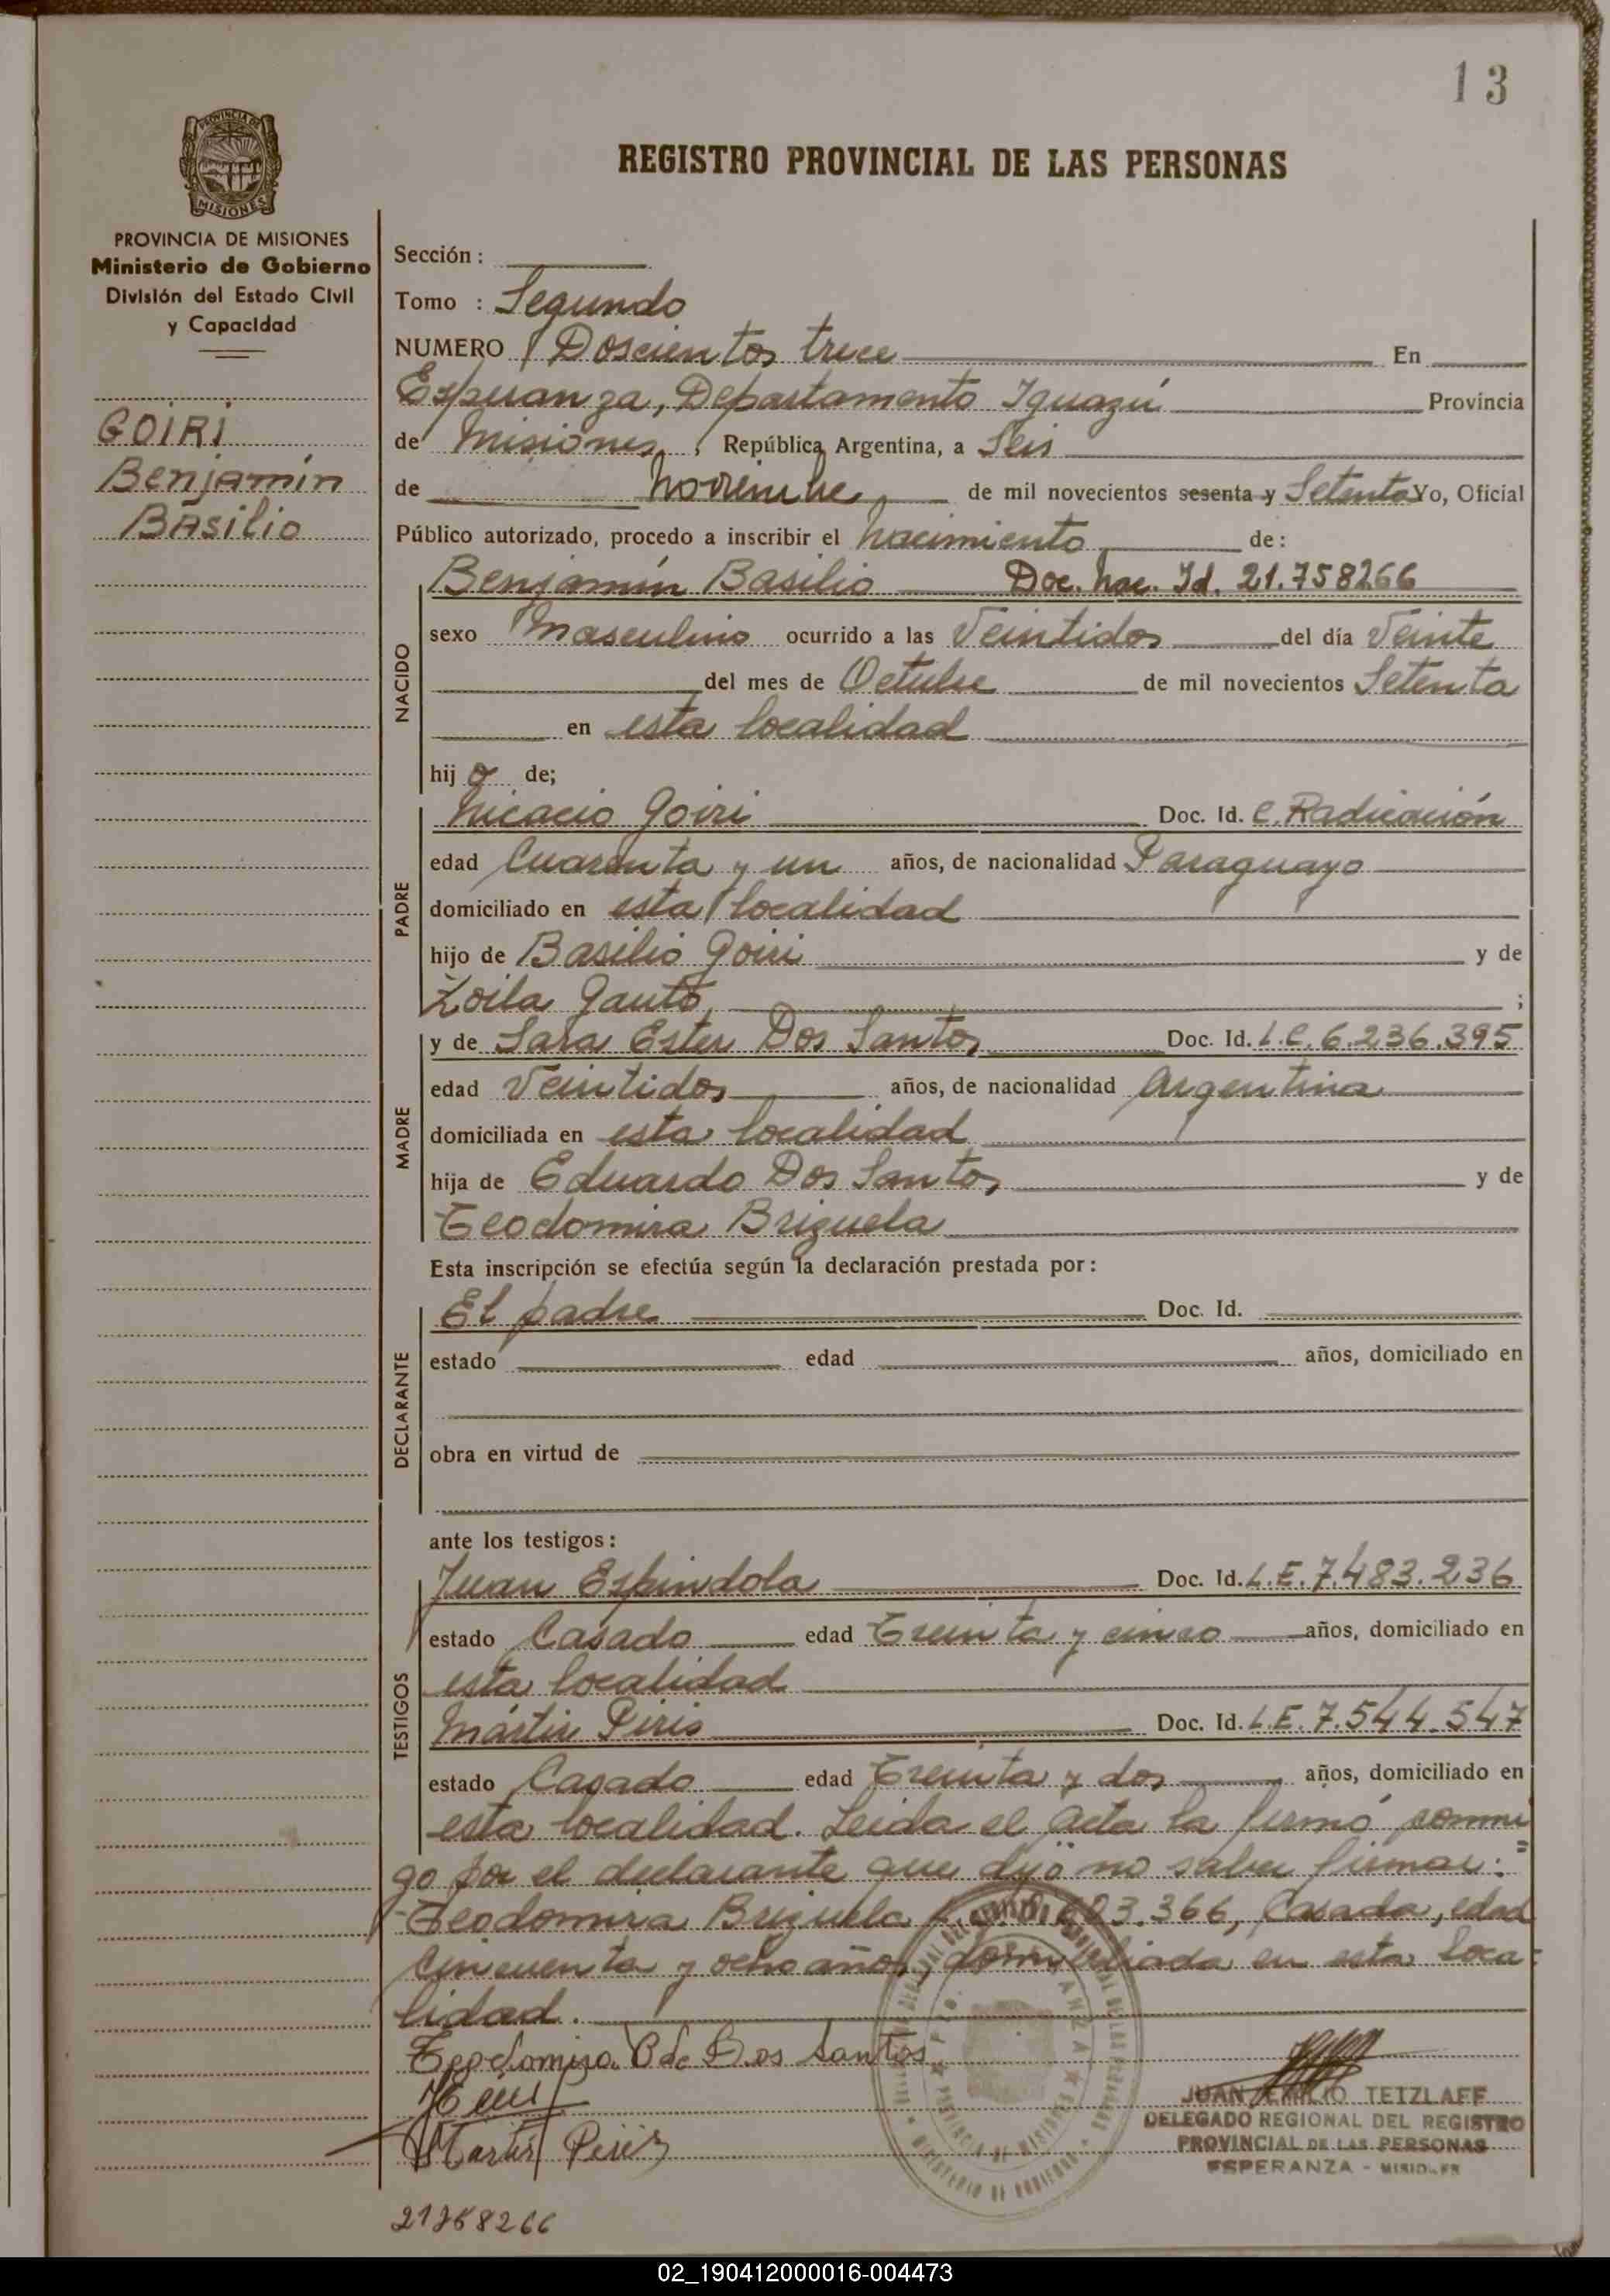 13
REGISTRO PROVINCIAL DE LAS PERSONAS
PROVINCIA DE
MISIONES
PROVINCIA DE MISIONES
Ministerio de Gobierno
División del Estado Civil
y Capacidad
GOIRI
Benjamín
Basilio
Sección :
Tomo : Segundo
NUMERO Doscientos trece En
Esperanza, Departamento Iguazú Provincia
de Misiones, República Argentina, a Seis
de Noviembre de mil novecientos sesenta y Setenta Yo, Oficial
Público autorizado, procedo a inscribir el Nacimiento de:
NACIDO
Benjamín Basilio Doc. Nac. Id. 21.758266
sexo Masculino ocurrido a las Veintidos del día Veinte
del mes de Octubre de mil novecientos Setenta
en esta localidad
hijo de;
PADRE
Nicacio Goiri Doc. Id. C. Radicación
edad Cuarenta y un años, de nacionalidad Paraguayo
domiciliado en esta localidad
hijo de Basilio Goiri y de
Zoila Gauto ;
MADRE
y de Sara Ester Dos Santos Doc. Id. L.C. 6.236.395
edad Veintidos años, de nacionalidad Argentina
domiciliada en esta localidad
hija de Eduardo Dos Santos y de
Teodomira Brizuela
Esta inscripción se efectúa según la declaración prestada por:
DECLARANTE
El padre Doc. Id.
estado edad años, domiciliado en
obra en virtud de
ante los testigos:
TESTIGOS
Juan Espindola Doc. Id. L.E. 7.483.236
estado Casado edad Treinta y cinco años, domiciliado en
esta localidad
Mártir Piris Doc. Id. L.E. 7.544.547
estado Casado edad Treinta y dos años, domiciliado en
esta localidad. Leida el acta la firmó conmi
go por el declarante que dijo no saber firmar:=
Teodomira Brizuela 366, Casada, edad
Cincuenta y ocho años, domiciliada en esta loca=
lidad.
Teodomira B de Dos Santos
Martir Piris
JUAN EMILIO TEIZLAFF
DELEGADO REGIONAL DEL REGISTRO
PROVINCIAL DE LAS PERSONAS
ESPERANZA - MISIONES
PROVINCIA DE MISIONES
MINISTERIO DE GOBIERNO
21758266
02_190412000016-004473